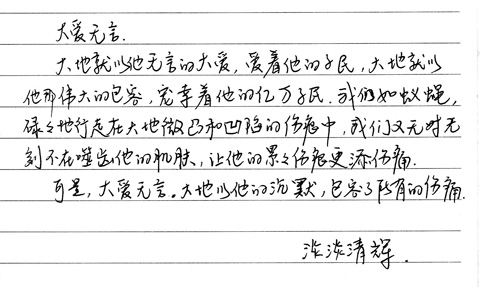 大爱无言.
大地就以他无言的大爱,爱着他的子民,大地就以
他那伟大的包容,宠幸着他的亿万子民.我们如蚁蝇,
碌々地行走在大地微凸和凹陷的伤痕中,我们又无时无
刻不在噬齿他的肌肤,让他的累々伤痕更添伤痛.
可是,大爱无言。大地以他的沉默,包容了所有的伤痛.
淡淡清辉.